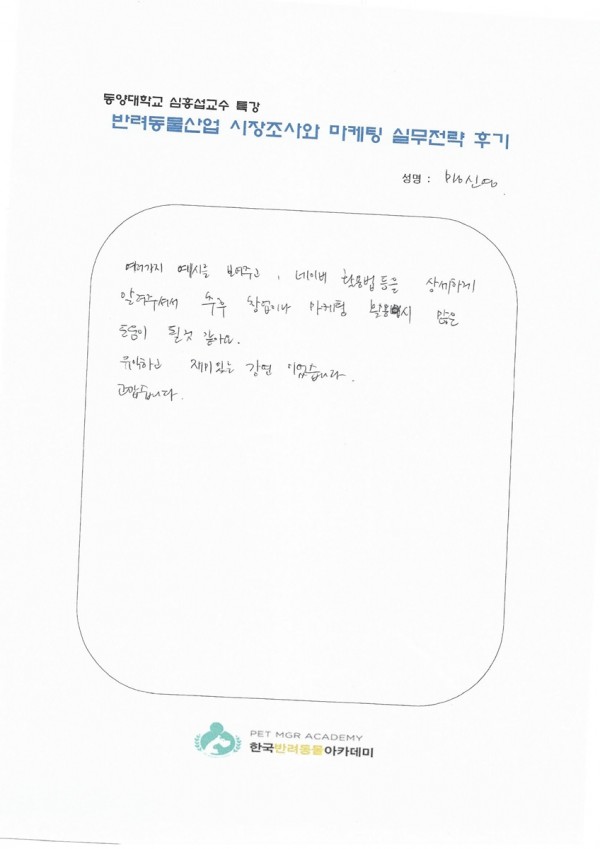 동양대학교 심홍섭교수 특강
반려동물산업 시장조사와 마케팅 실무전략 후기
성명 : 신영.
여러가지 예시를 보여주고, 네이버 활용법등을 상세하게
알려주셔서 추후 창업이나 마케팅 활용시 많은
도움이 될것 같아요.
유익하고 재미있는 강연 이었습니다.
고맙습니다.
PET MGR ACADEMY
한국반려동물아카데미